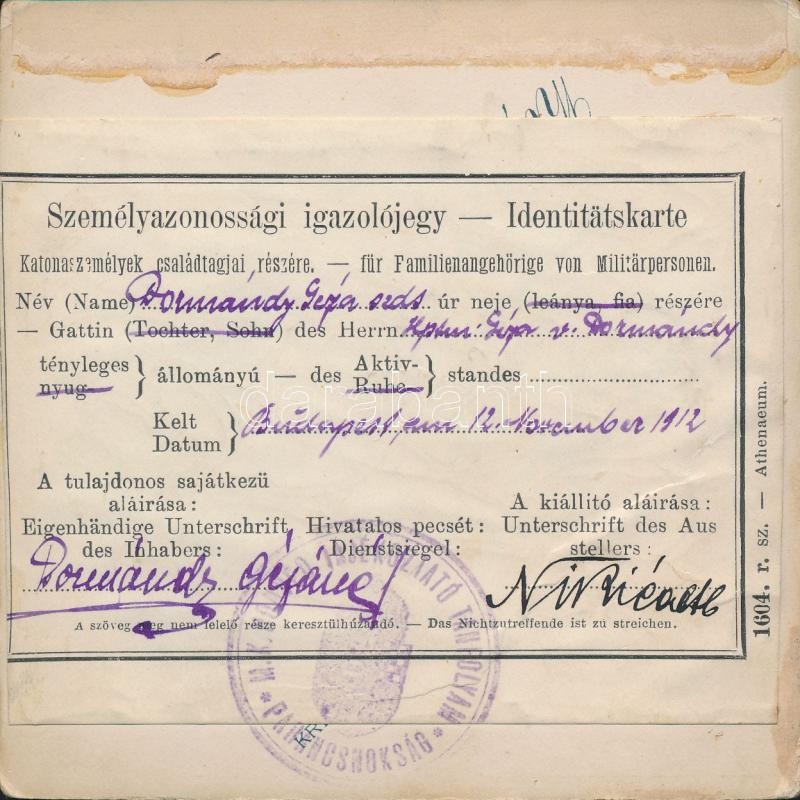 Személyazonossági igazolójegy — Identitätskarte
Katonaszemélyek családtagjai részére. — für Familienangehörige von Militärpersonen.
Név (Name) Dormándy Géza szds. úr neje (leánya, fia) részére
— Gattin (Tochter, Sohn) des Herrn Hptm. Géza v. Dormándy
tényleges } állományú — des Aktiv- } standes
nyug- Ruhe-
Kelt } Budapest, am 12. November 1912
Datum
A tulajdonos sajátkezü
aláirása:
Eigenhändige Unterschrift
des Inhabers:
Dormándy Gézáné
Hivatalos pecsét:
Dienstsiegel:
A kiállitó aláirása:
Unterschrift des Aus
stellers:
A szöveg meg nem felelő része keresztülhúzandó. — Das Nichtzutreffende ist zu streichen.
1604. r. sz. — Athenaeum.
TÁJÉKOZTATÓ TANFOLYAM
* PARANCSNOKSÁG *
darabanth